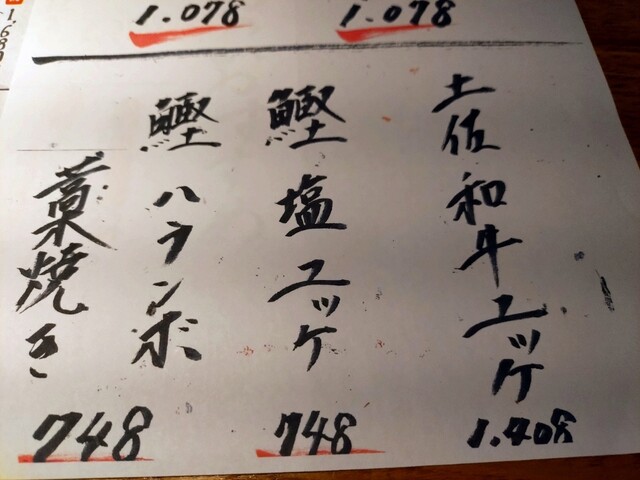 1.078
1.078
土佐和牛ユッケ
1.408
鰹塩ユッケ
748
鰹ハランボ
藁焼き
748